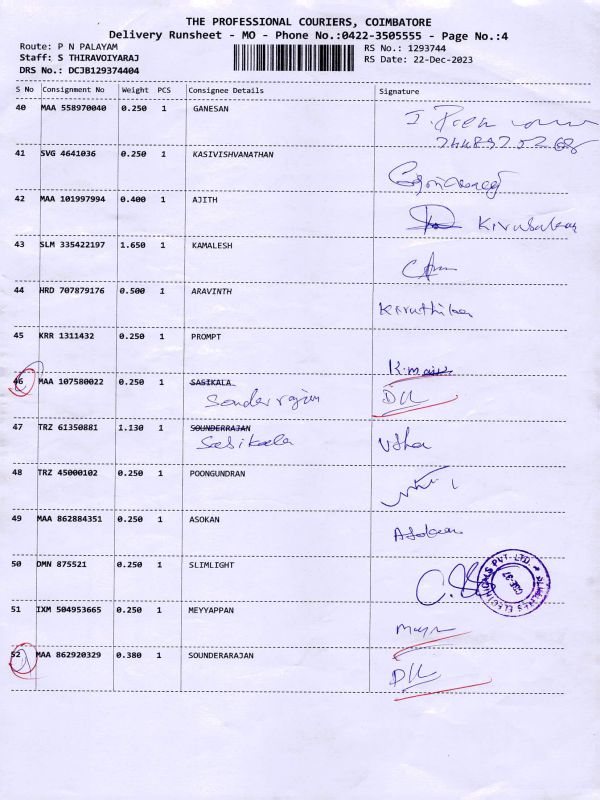 THE PROFESSIONAL COURIERS, COIMBATORE
Delivery Runsheet - MO - Phone No.:0422-3505555 - Page No.:4
Route: P N PALAYAM RS No.: 1293744
Staff: S THIRAVOIYARAJ RS Date: 22-Dec-2023
DRS No.: DCJB129374404
S No Consignment No Weight PCS Consignee Details Signature
40 MAA 558970040 0.250 1 GANESAN
41 SVG 4641036 0.250 1 KASIVISHVANATHAN
42 MAA 101997994 0.400 1 AJITH
43 SLM 335422197 1.650 1 KAMALESH
44 HRD 707879176 0.500 1 ARAVINTH
Kiruthika
45 KRR 1311432 0.250 1 PROMPT
46 MAA 107580022 0.250 1 SASIKALA
Sounderrajan
47 TRZ 61350881 1.130 1 SOUNDERRAJAN
Sasikala Usha
48 TRZ 45000102 0.250 1 POONGUNDRAN
49 MAA 862884351 0.250 1 ASOKAN
Asokan
50 DMN 875521 0.250 1 SLIMLIGHT
51 IXM 504953665 0.250 1 MEYYAPPAN
52 MAA 862920329 0.380 1 SOUNDERARAJAN